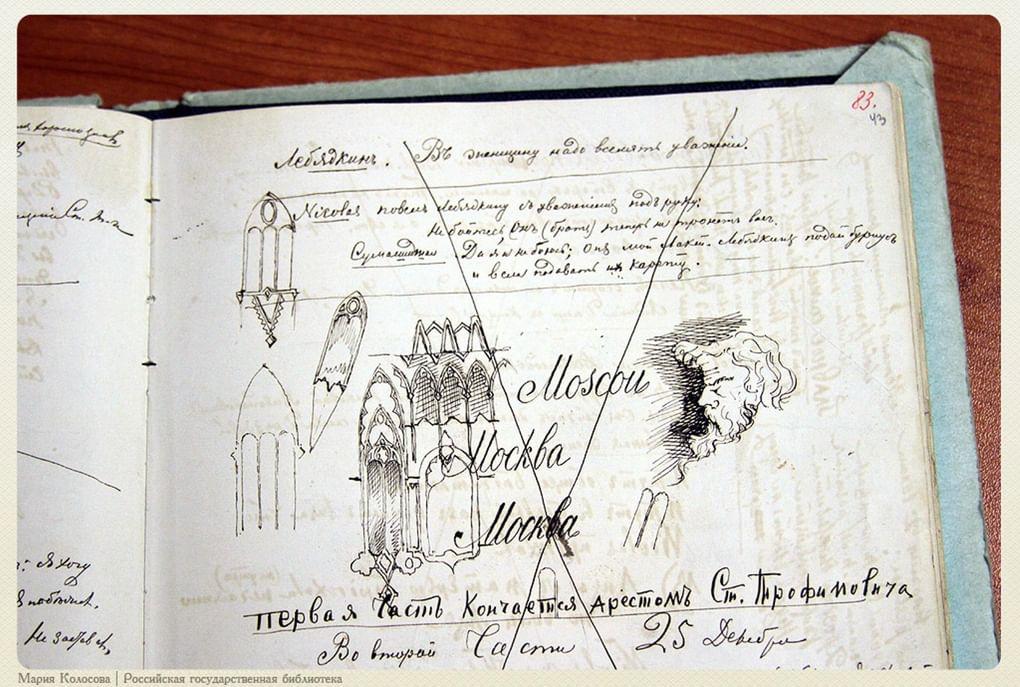 83.
43
Лебядкинъ. Въ женщину надо вселять уваженіе.
Nicolas повелъ Лебядкину съ уваженіемъ подъ руку:
Не бойтесь Онъ (братъ) теперь не тронетъ васъ.
Сумасшедшая. Да я и не боюсь; Онъ мой лакей. Лебядкинъ подай бурнусъ
и вели подавать карету.
Moscou
Москва
Москва
первая Часть Кончается Арестомъ Ст. Трофимовича
Во второй Части 25 Декабря
Я хочу
Не заставъ,
Мария Колосова | Российская государственная библиотека